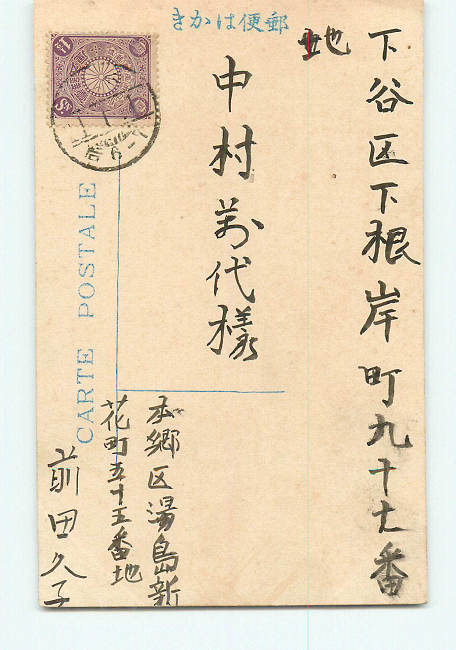 郵便はかき
下谷区下根岸町九十七番
地
中村萬代様
本郷区湯島新
花町五十五番地
前田久子
CARTE POSTALE